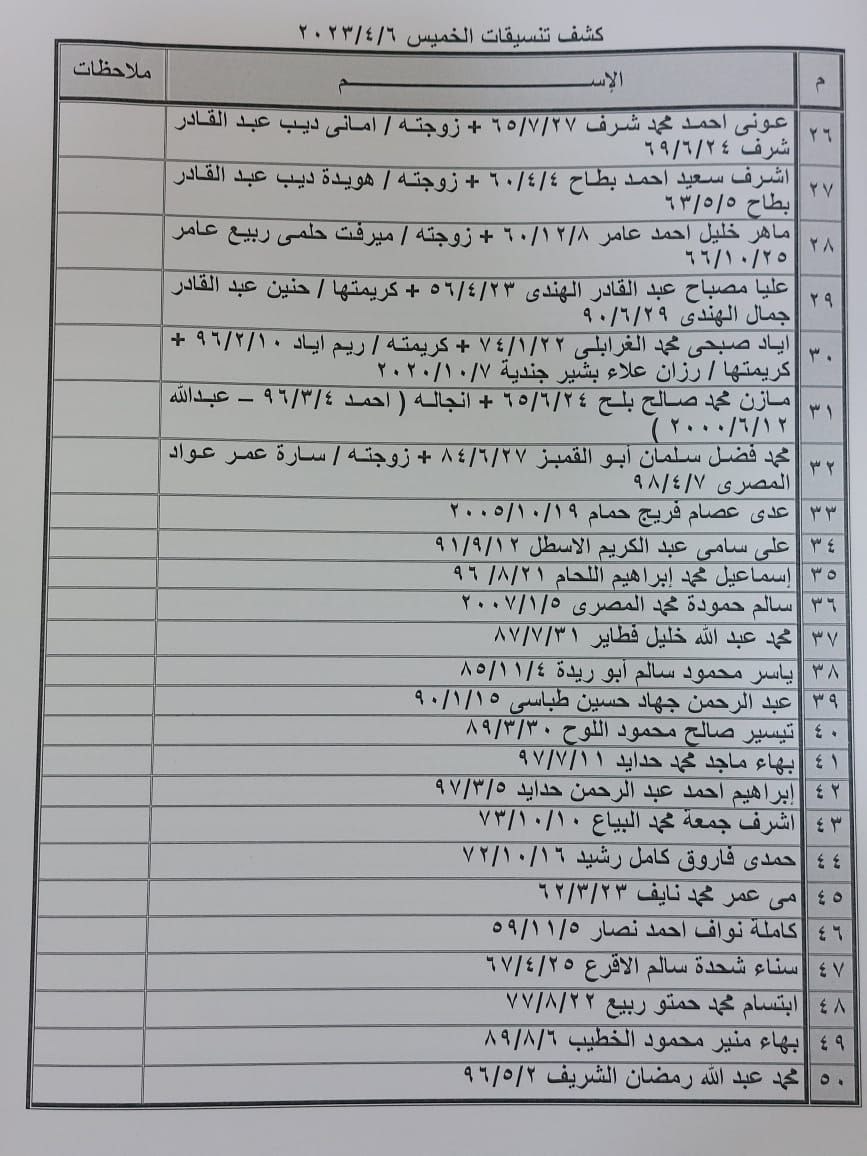 كشف تنسيقات الخميس ٢٠٢٣/٤/٦
م الإســـــــم ملاحظات
٢٦ عونى احمد محمد شرف ٦٥/٧/٢٧ + زوجته / امانى ديب عبد القادر
شرف ٦٩/٦/٢٤
٢٧ اشرف سعيد احمد بطاح ٦٠/٤/٤ + زوجته / هويدة ديب عبد القادر
بطاح ٦٣/٥/٥
٢٨ ماهر خليل احمد عامر ٦٠/١٢/٨ + زوجته / ميرفت حلمى ربيع عامر
٦٦/١٠/٢٥
٢٩ عليا مصباح عبد القادر الهندى ٥٦/٤/٢٣ + كريمتها / حنين عبد القادر
جمال الهندى ٩٠/٦/٢٩
٣٠ اياد صبحى محمد الغرابلى ٧٤/١/٢٢ + كريمته / ريم اياد ٩٦/٢/١٠ +
كريمتها / رزان علاء بشير جندية ٢٠٢٠/١٠/٧
٣١ مازن محمد صالح بلح ٦٥/٦/٢٤ + انجاله ( احمد ٩٦/٣/٤ – عبدالله
٢٠٠٠/٦/١٢ )
٣٢ محمد فضل سلمان أبو القمبز ٨٤/٦/٢٧ + زوجته / سارة عمر عواد
المصرى ٩٨/٤/٧
٣٣ عدى عصام فريج حمام ٢٠٠٥/١٠/١٩
٣٤ على سامى عبد الكريم الاسطل ٩١/٩/١٢
٣٥ إسماعيل محمد إبراهيم اللحام ٩٦/٨/٢١
٣٦ سالم حمودة محمد المصرى ٢٠٠٧/١/٥
٣٧ محمد عبد الله خليل فطاير ٨٧/٧/٣١
٣٨ ياسر محمود سالم أبو ريدة ٨٥/١١/٤
٣٩ عبد الرحمن جهاد حسين طباسى ٩٠/١/١٥
٤٠ تيسير صالح محمود اللوح ٨٩/٣/٣٠
٤١ بهاء ماجد محمد حدايد ٩٧/٧/١١
٤٢ إبراهيم احمد عبد الرحمن حدايد ٩٧/٣/٥
٤٣ اشرف جمعة محمد البياع ٧٣/١٠/١٠
٤٤ حمدى فاروق كامل رشيد ٧٢/١٠/١٦
٤٥ مى عمر محمد نايف ٦٢/٣/٢٣
٤٦ كاملة نواف احمد نصار ٥٩/١١/٥
٤٧ سناء شحدة سالم الاقرع ٦٧/٤/٢٥
٤٨ ابتسام محمد حمتو ربيع ٧٧/٨/٢٢
٤٩ بهاء منير محمود الخطيب ٨٩/٨/٦
٥٠ محمد عبد الله رمضان الشريف ٩٦/٥/٢